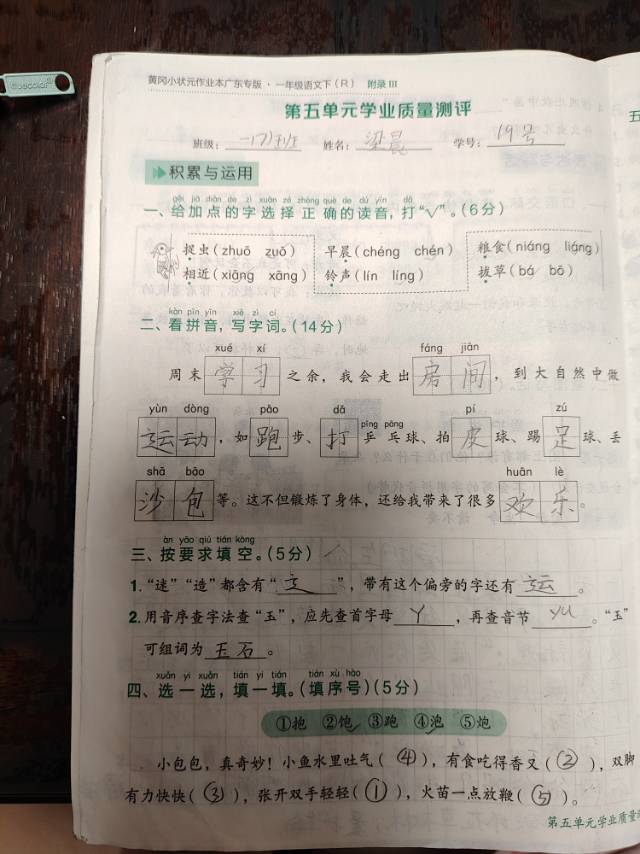 黄冈小状元作业本广东专版·一年级语文下(R) 附录 III
第五单元学业质量测评
班级: 一(7)班 姓名: 梁晨 学号: 19号
积累与运用
gěi jiā diǎn de zì xuǎn zé zhèng què de dú yīn dǎ
一、给加点的字选择正确的读音,打“√”。(6分)
捉虫(zhuō zuō) 早晨(chéng chén) 粮食(niáng liáng)
相近(xiāng xāng) 铃声(lín líng) 拔草(bá bō)
kàn pīn yīn xiě zì cí
二、看拼音,写字词。(14分)
xué xí fáng jiān
周末学习之余,我会走出房间,到大自然中做
yùn dòng pǎo dǎ pīng pāng pí zú
运动,如跑步、打乒乓球、拍皮球、踢足球、丢
shā bāo huān lè
沙包等。这不但锻炼了身体,还给我带来了很多欢乐。
àn yāo qiú tián kòng
三、按要求填空。(5分)
1.“迷”“造”都含有“辶”,带有这个偏旁的字还有运。
2.用音序查字法查“玉”,应先查首字母Y,再查音节yu。“玉”
可组词为玉石。
xuǎn yi xuǎn tián yi tián tián xù hào
四、选一选,填一填。(填序号)(5分)
①抱 ②饱 ③跑 ④泡 ⑤炮
小包包,真奇妙!小鱼水里吐气(④),有食吃得香又(②),双脚
有力快快(③),张开双手轻轻(①),火苗一点放鞭(⑤)。
第五单元学业质量